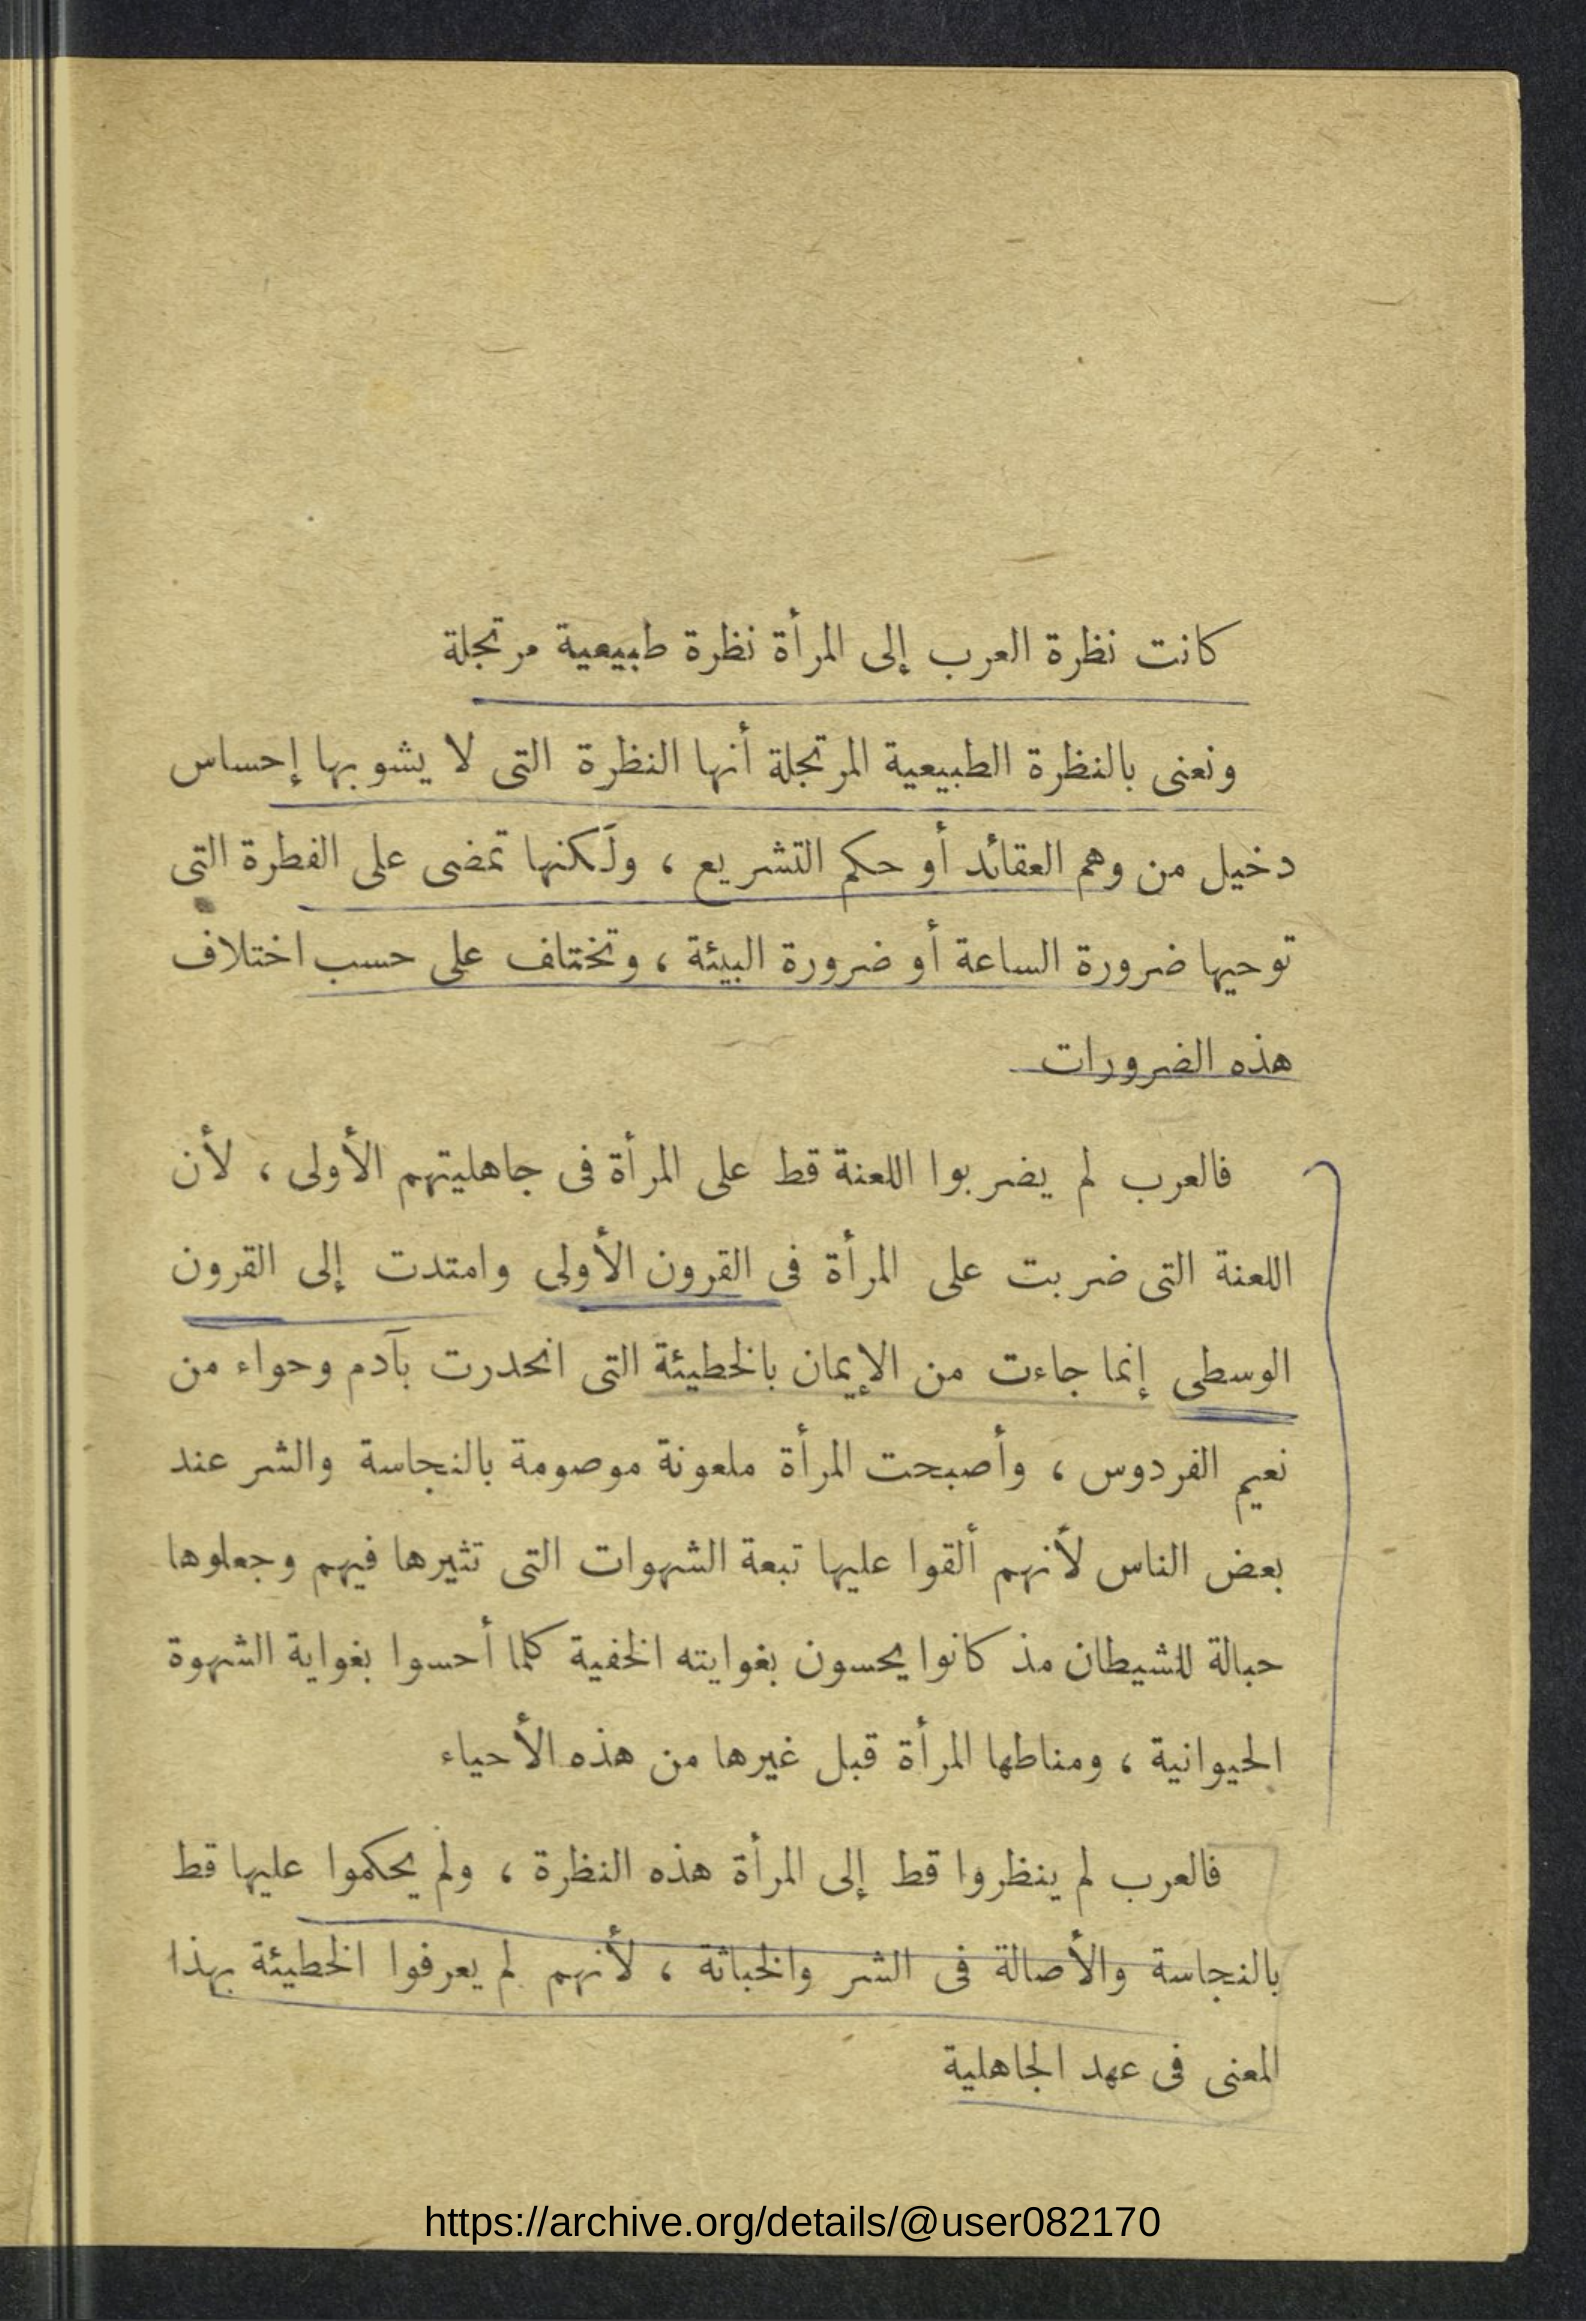 كانت نظرة العرب إلى المرأة نظرة طبيعية مرتجلة
ونعنى بالنظرة الطبيعية المرتجلة أنها النظرة التى لا يشوبها إحساس
دخيل من وهم العقائد أو حكم التشريع ، ولكنها تمضى على الفطرة التى
توحيها ضرورة الساعة أو ضرورة البيئة ، وتختلف على حسب اختلاف
هذه الضرورات
فالعرب لم يضربوا اللعنة قط على المرأة فى جاهليتهم الأولى ، لأن
اللعنة التى ضربت على المرأة فى القرون الأولى وامتدت إلى القرون
الوسطى إنما جاءت من الإيمان بالخطيئة التى انحدرت بآدم وحواء من
نعيم الفردوس ، وأصبحت المرأة ملعونة موصومة بالنجاسة والشر عند
بعض الناس لأنهم ألقوا عليها تبعة الشهوات التى تثيرها فيهم وجعلوها
حبالة للشيطان مذ كانوا يحسون بغوايته الخفية كلما أحسوا بغواية الشهوة
الحيوانية ، ومناطها المرأة قبل غيرها من هذه الأحياء
فالعرب لم ينظروا قط إلى المرأة هذه النظرة ، ولم يحكموا عليها قط
بالنجاسة والأصالة فى الشر والخباثة ، لأنهم لم يعرفوا الخطيئة بهذا
المعنى فى عهد الجاهلية
https://archive.org/details/@user082170